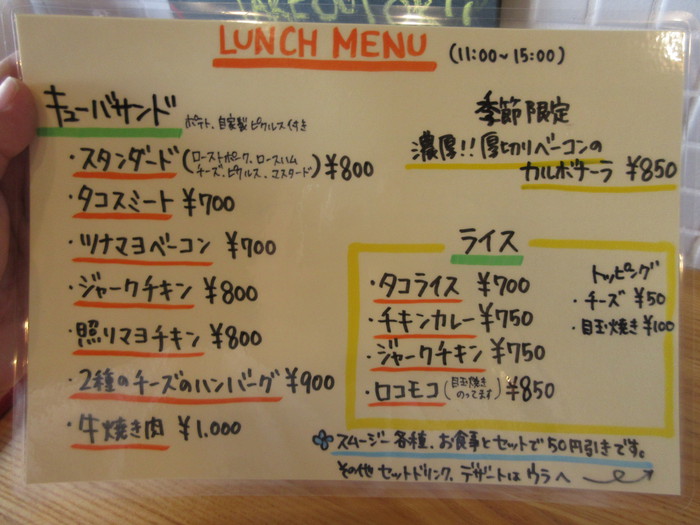 LUNCH MENU (11:00~15:00)
キューバサンド ポテト、自家製ピクルス付き
・スタンダード (ローストポーク、ロースハム
チーズ、ピクルス、マスタード) ¥800
・タコスミート ¥700
・ツナマヨベーコン ¥700
・ジャークチキン ¥800
・照りマヨチキン ¥800
・2種のチーズのハンバーグ ¥900
・牛焼き肉 ¥1.000
季節限定
濃厚!!厚切りベーコンの
カルボナーラ ¥850
ライス
・タコライス ¥700
・チキンカレー ¥750
・ジャークチキン ¥750
・ロコモコ (目玉焼き
のってます) ¥850
トッピング
・チーズ ¥50
・目玉焼き ¥100
スムージー各種、お食事とセットで50円引きです。
その他セットドリンク、デザートはウラへ